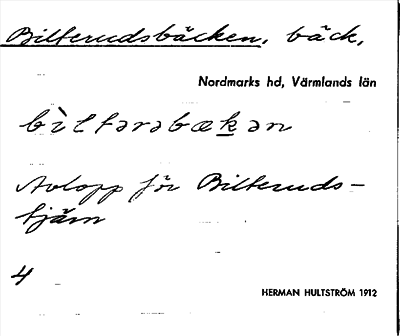 Bilterudsbäcken, bäck,
Nordmarks hd, Värmlands län
bìltərəbækən
Avlopp för Bilteruds-
tjärn
4
HERMAN HULTSTRÖM 1912